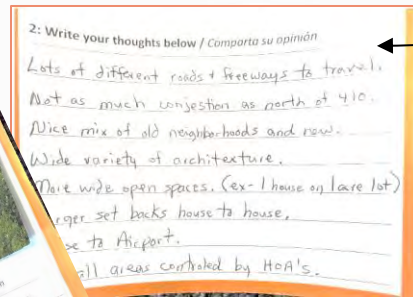 2: Write your thoughts below / Comparta su opinión
Lots of different roads & freeways to travel.
Not as much conjestion as north of 410.
Nice mix of old neighborhoods and new.
Wide variety of architexture.
More wide open spaces. (ex- 1 house on lare lot)
set backs house to house.
to Airport.
all areas controled by HOA's.